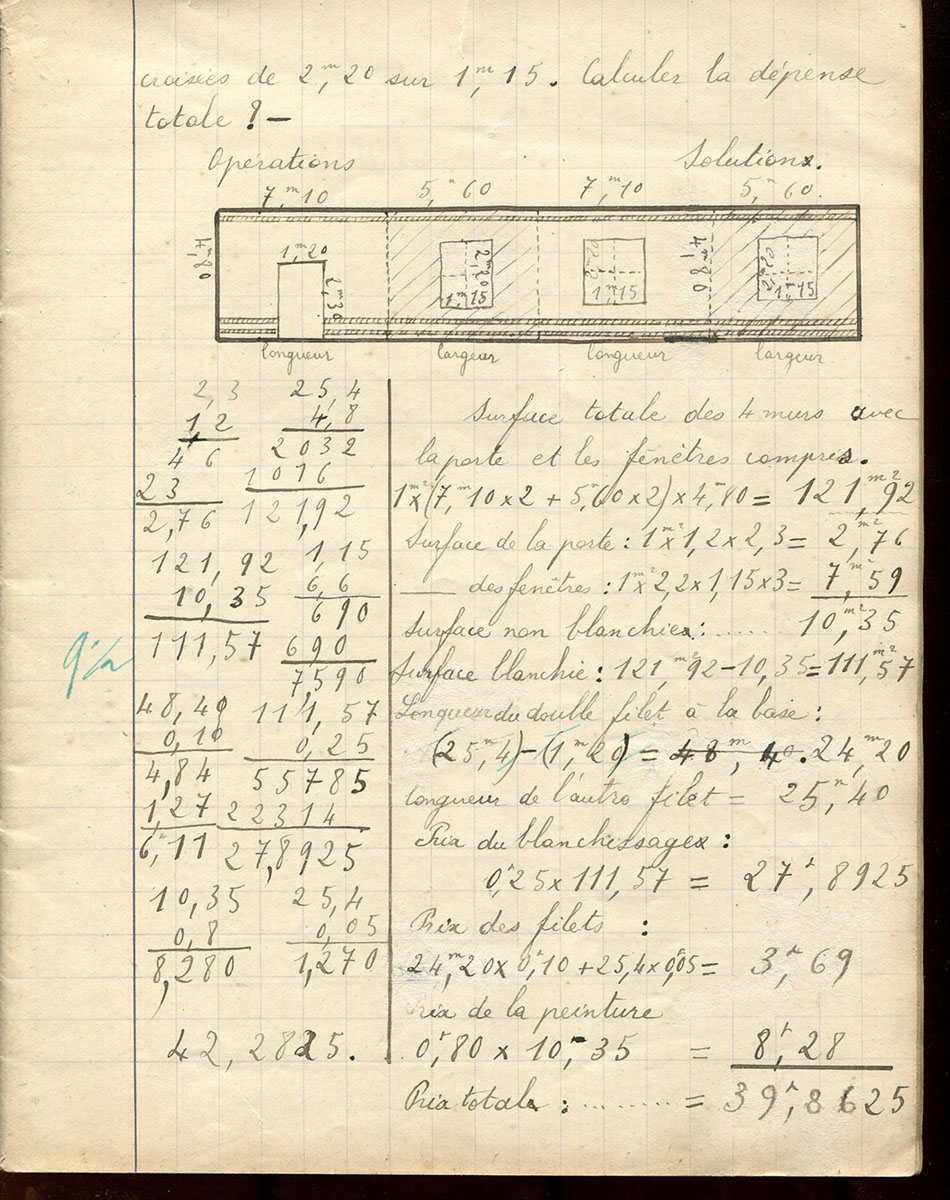 croisées de 2,ᵐ20 sur 1,ᵐ15. Calculer la dépense
totale !—
Opérations Solutions.
7,ᵐ10 5,ᵐ60 7,ᵐ10 5,ᵐ60.
4,ᵐ80
1,ᵐ20
2,ᵐ30
2,ᵐ20
1,ᵐ15
2,ᵐ20
1,ᵐ15
4,ᵐ80
2,ᵐ20
1,ᵐ15
longueur largeur longueur largeur
2,3 25,4
1,2 4,8
4 6 2032
23 1016
2,76 121,92
121,92 1,15
10,35 6,6
111,57 690
690
7,590
9½
48,40 111,57
0,10 0,25
4,84 55785
1,27 22314
6,11 27,8925
10,35 25,4
0,8 0,05
8,280 1,270
42,2825.
Surface totale des 4 murs avec
la porte et les fenêtres compris.
1ᵐ²×(7,ᵐ10 x 2 + 5,ᵐ60 x 2) x 4,ᵐ80 = 121,ᵐ²92
Surface de la porte : 1ᵐ²x1,2 x 2,3 = 2,ᵐ²76
—— des fenêtres : 1ᵐ²x2,2x1,15x3 = 7,ᵐ²59
Surface non blanchie : ...... 10,ᵐ²35
Surface blanchie : 121,ᵐ²92 – 10,35 = 111,ᵐ²57
Longueur du double filet à la base :
(25,ᵐ4) – (1,ᵐ20) = 48,ᵐ40. 24,ᵐ20
longueur de l'autre filet = 25,ᵐ40
Prix du blanchissage :
0,ᶠ25 x 111,57 = 27ᶠ,8925
Prix des filets :
24,ᵐ20 x 0,ᶠ10 + 25,4 x 0,ᶠ05 = 3,ᶠ69
Prix de la peinture
0,ᶠ80 x 10,35 = 8,ᶠ28
Prix total : ......... = 39,ᶠ8625